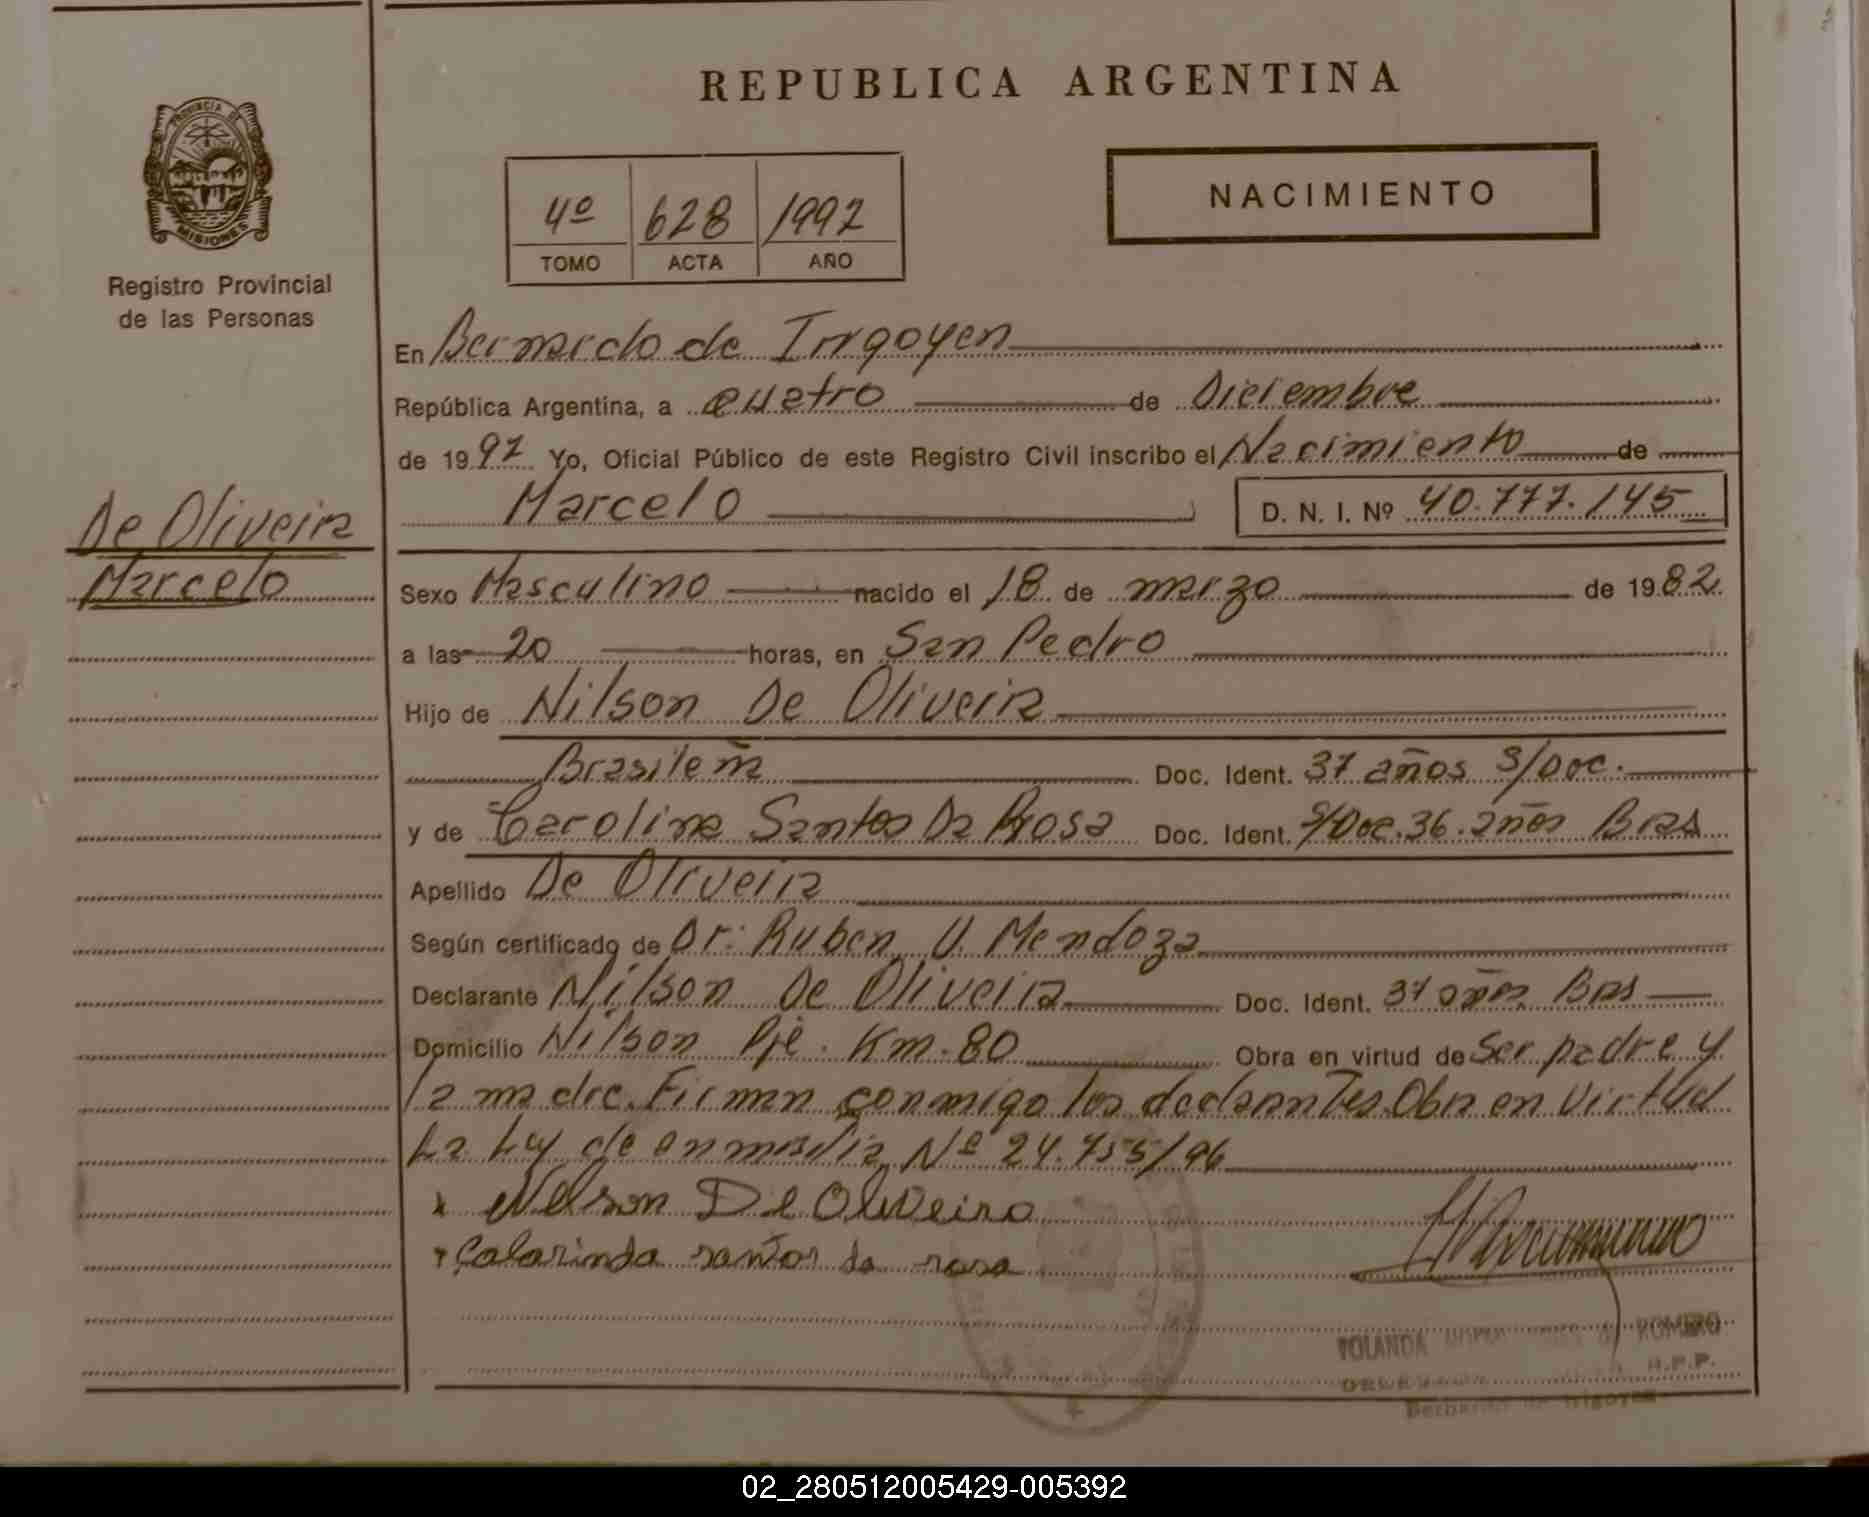 REPUBLICA ARGENTINA
PROVINCIA DE
MISIONES
Registro Provincial
de las Personas
NACIMIENTO
4º 628 1992
TOMO ACTA AÑO
En Bernardo de Irrgoyen
República Argentina, a cuatro de Diciembre
de 1992 Yo, Oficial Público de este Registro Civil inscribo el Nacimiento de
Marcelo D. N. I. Nº 40.777.145
De Oliveira
Marcelo
Sexo Masculino nacido el 18 de marzo de 1982
a las 20 horas, en San Pedro
Hijo de Nilson De Oliveira
Brasileña Doc. Ident. 37 años S/Doc.
y de Carolina Santos Da Rosa Doc. Ident. S/Doc. 36. años Bras
Apellido De Oliveira
Según certificado de Dr: Ruben U. Mendoza
Declarante Nilson De Oliveira Doc. Ident. 37 años Bras
Domicilio Nilson Pje. Km. 80 Obra en virtud de Ser padre y
la madre. Firman conmigo los declarantes. Obra en Virtud
La Ley de Nº 24.755/96
x Nelson De Oliveira
x Calarinda santos da rosa
YOLANDA ROMERO
R.P.P.
Bernardo de Irigoyen
02_280512005429-005392